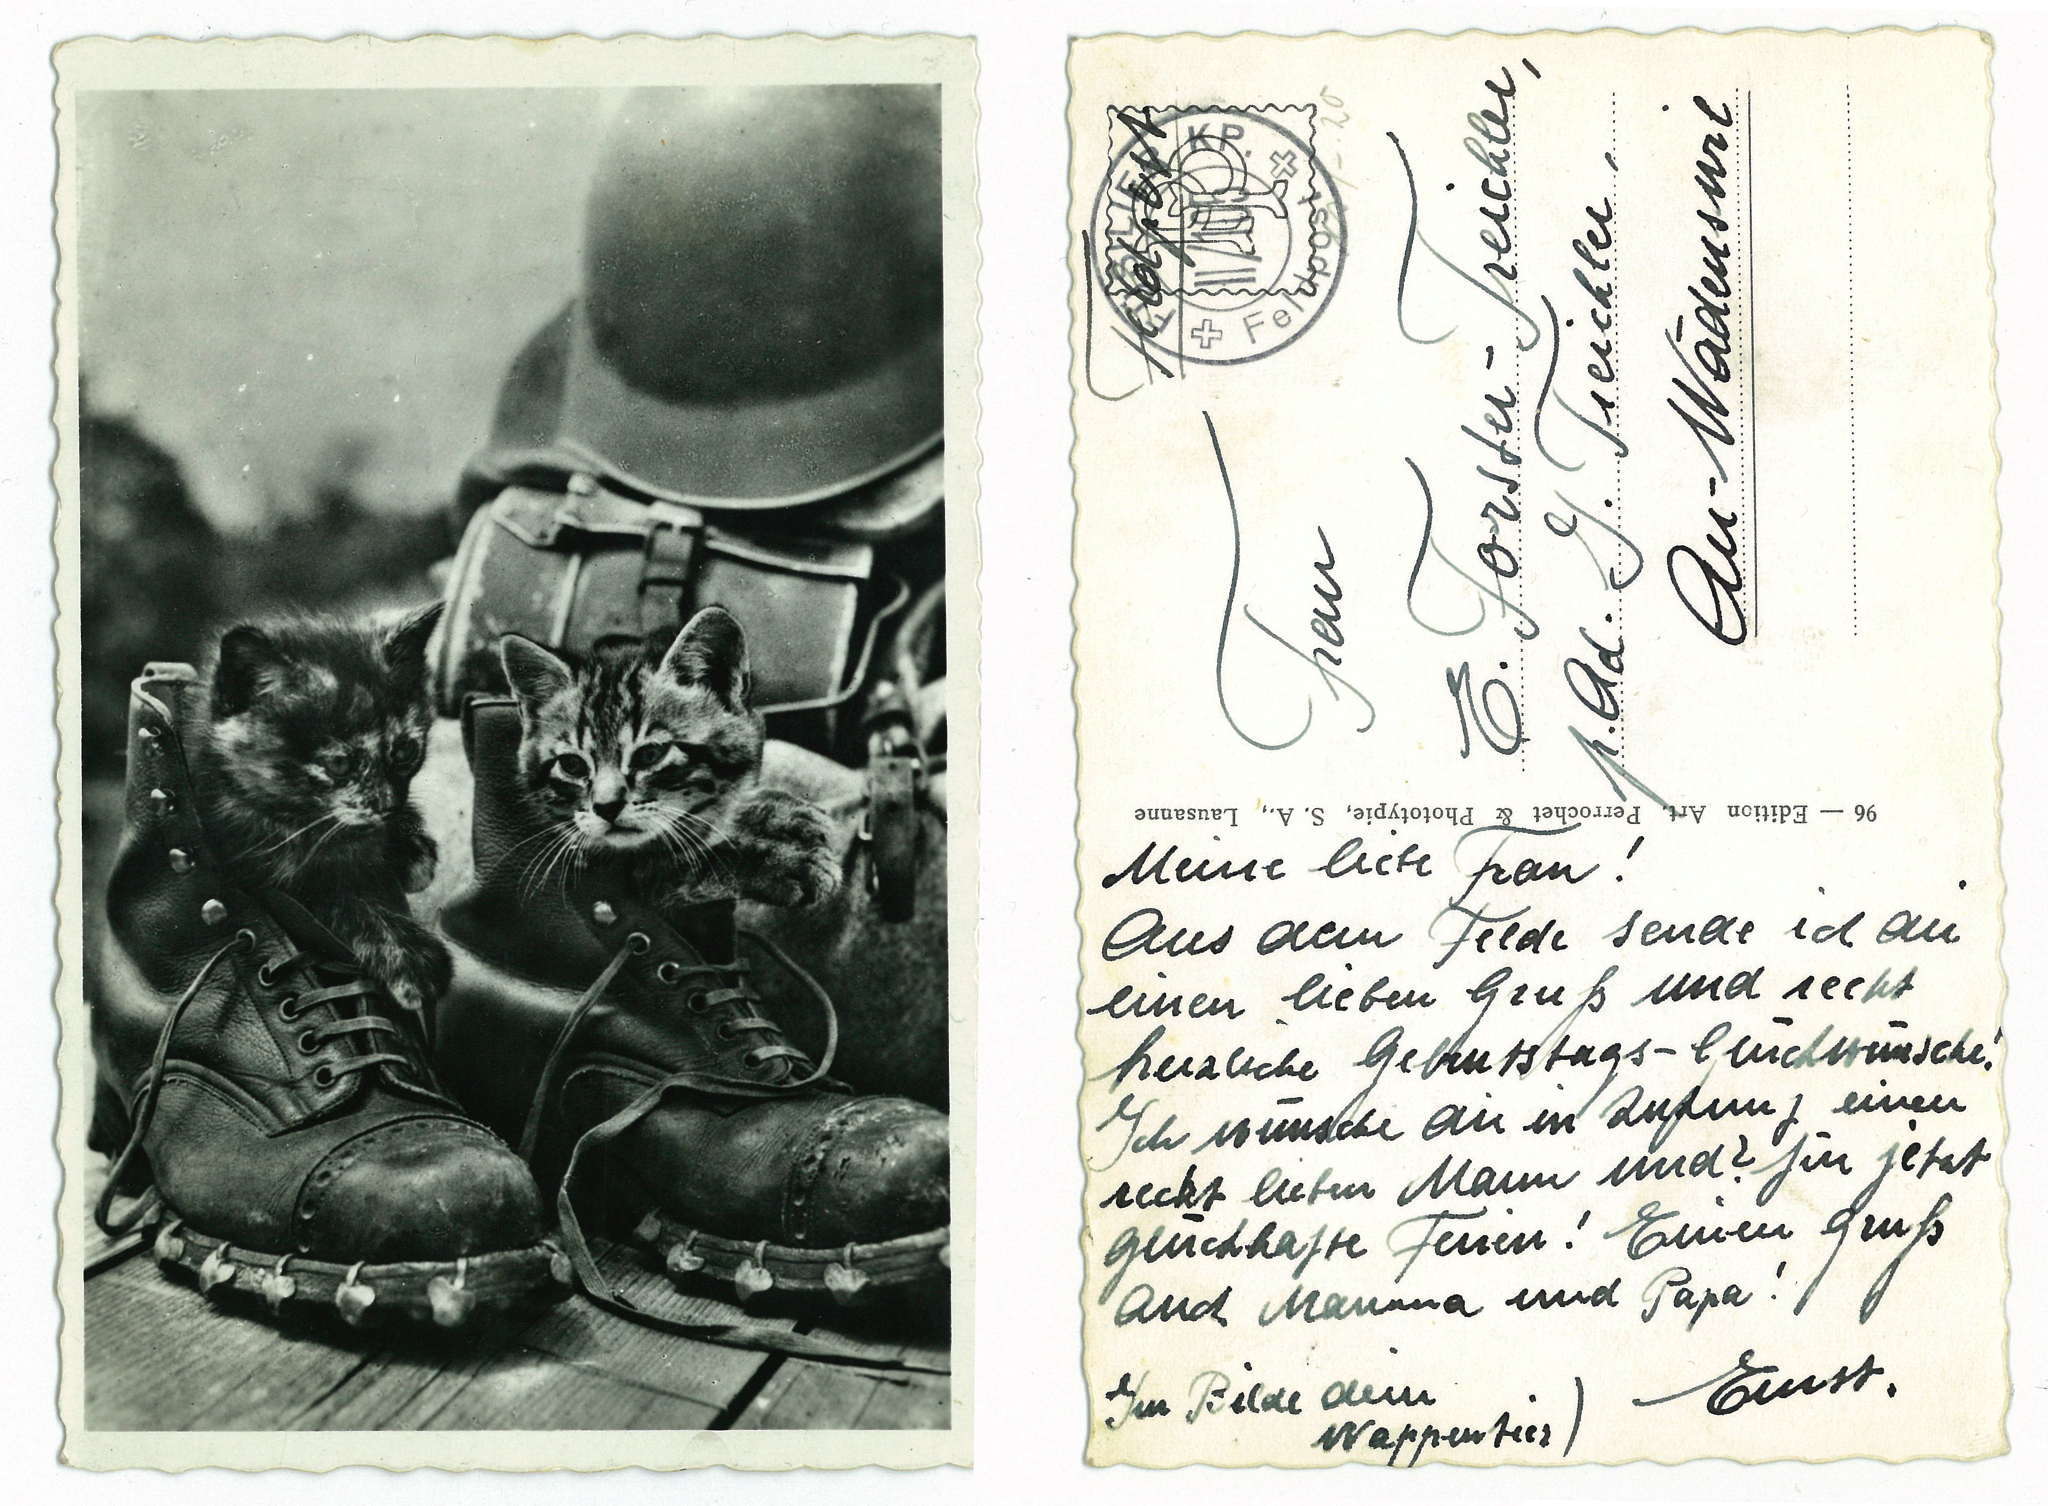 Feldpost
FÜSILIER KP.
II/205
Feldpost
Frau
E. Forster-Treichler,
p. Ad. J. Treichler,
Au-Wädenswil
96 — Edition Art. Perrochet & Phototypie, S. A., Lausanne
Meine liebe Frau!
Aus dem Felde sende ich dir
einen lieben Gruß und recht
herzliche Geburtstags-Glückwünsche!
Ich wünsche dir in Zukunft einen
recht lieben Mann und? für jetzt
glückhafte Ferien! Einen Gruß
And Mamma und Papa!
Ernst.
Im Bilde dein
Wappentier)